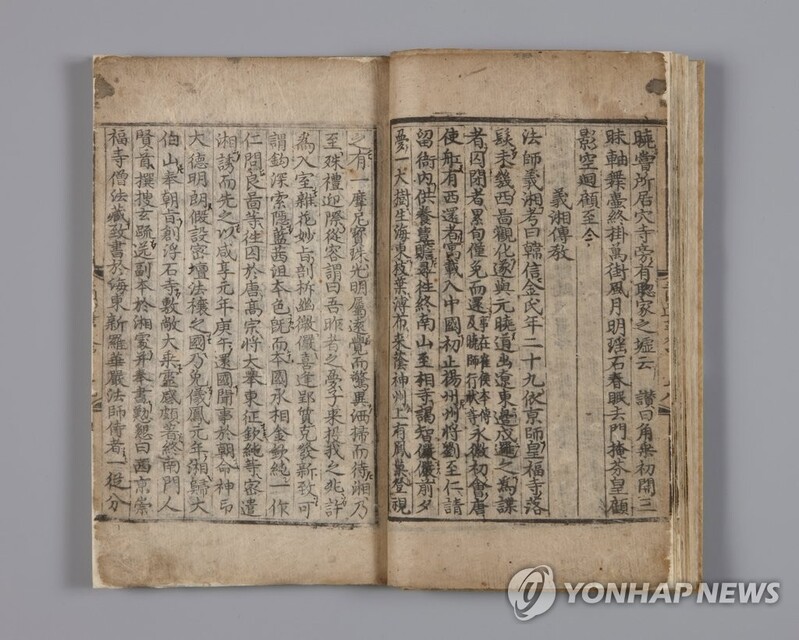 曉嘗所居穴寺旁有聦家之墟云 讃曰角乗初開三
昧軸舞壷終掛萬街風月明瑶石春眠去門掩芬皇顧
影空廻顧至今
義湘傳教
法師義湘考曰韓信金氏年二十九依京師皇福寺落
髮未幾西啚觀化遂與元曉道出遼東邊戍邏之爲諜
者囚閉者累旬僅免而還事在崔侯本傳及曉師行狀等永徽初會唐
使舡有西還者寓載入中國初止揚州州將劉至仁請
留衙内供養豊贍尋往終南山至相寺謁智儼儼前夕
夢一大樹生海東枝葉溥布來蔭神州上有鳳巢登視
之有一摩尼寶珠光明屬遠覺而驚異洒掃而待湘乃
至殊禮迎際從容謂曰吾昨者之夢子來投我之兆許
爲入室雜花妙旨剖析幽微儼喜逢郢質克發新致可
謂鈎深索隱藍茜沮本色旣而本國丞相金欽純一作
仁問良啚等往囚於唐高宗將大擧東征欽純等密遣
湘誘而先之以咸享元年庚午還國聞事於朝命神印
大德明朗假設密壇法禳之國乃免儀鳳元年湘歸大
伯山奉朝旨創浮石寺敷敞大乗靈感頗著終南門人
賢首撰搜玄疏送副本於湘處并奉書懃懇曰西京崇
福寺僧法藏致書於海東新羅華嚴法師侍者一從分
YONHAP NEWS